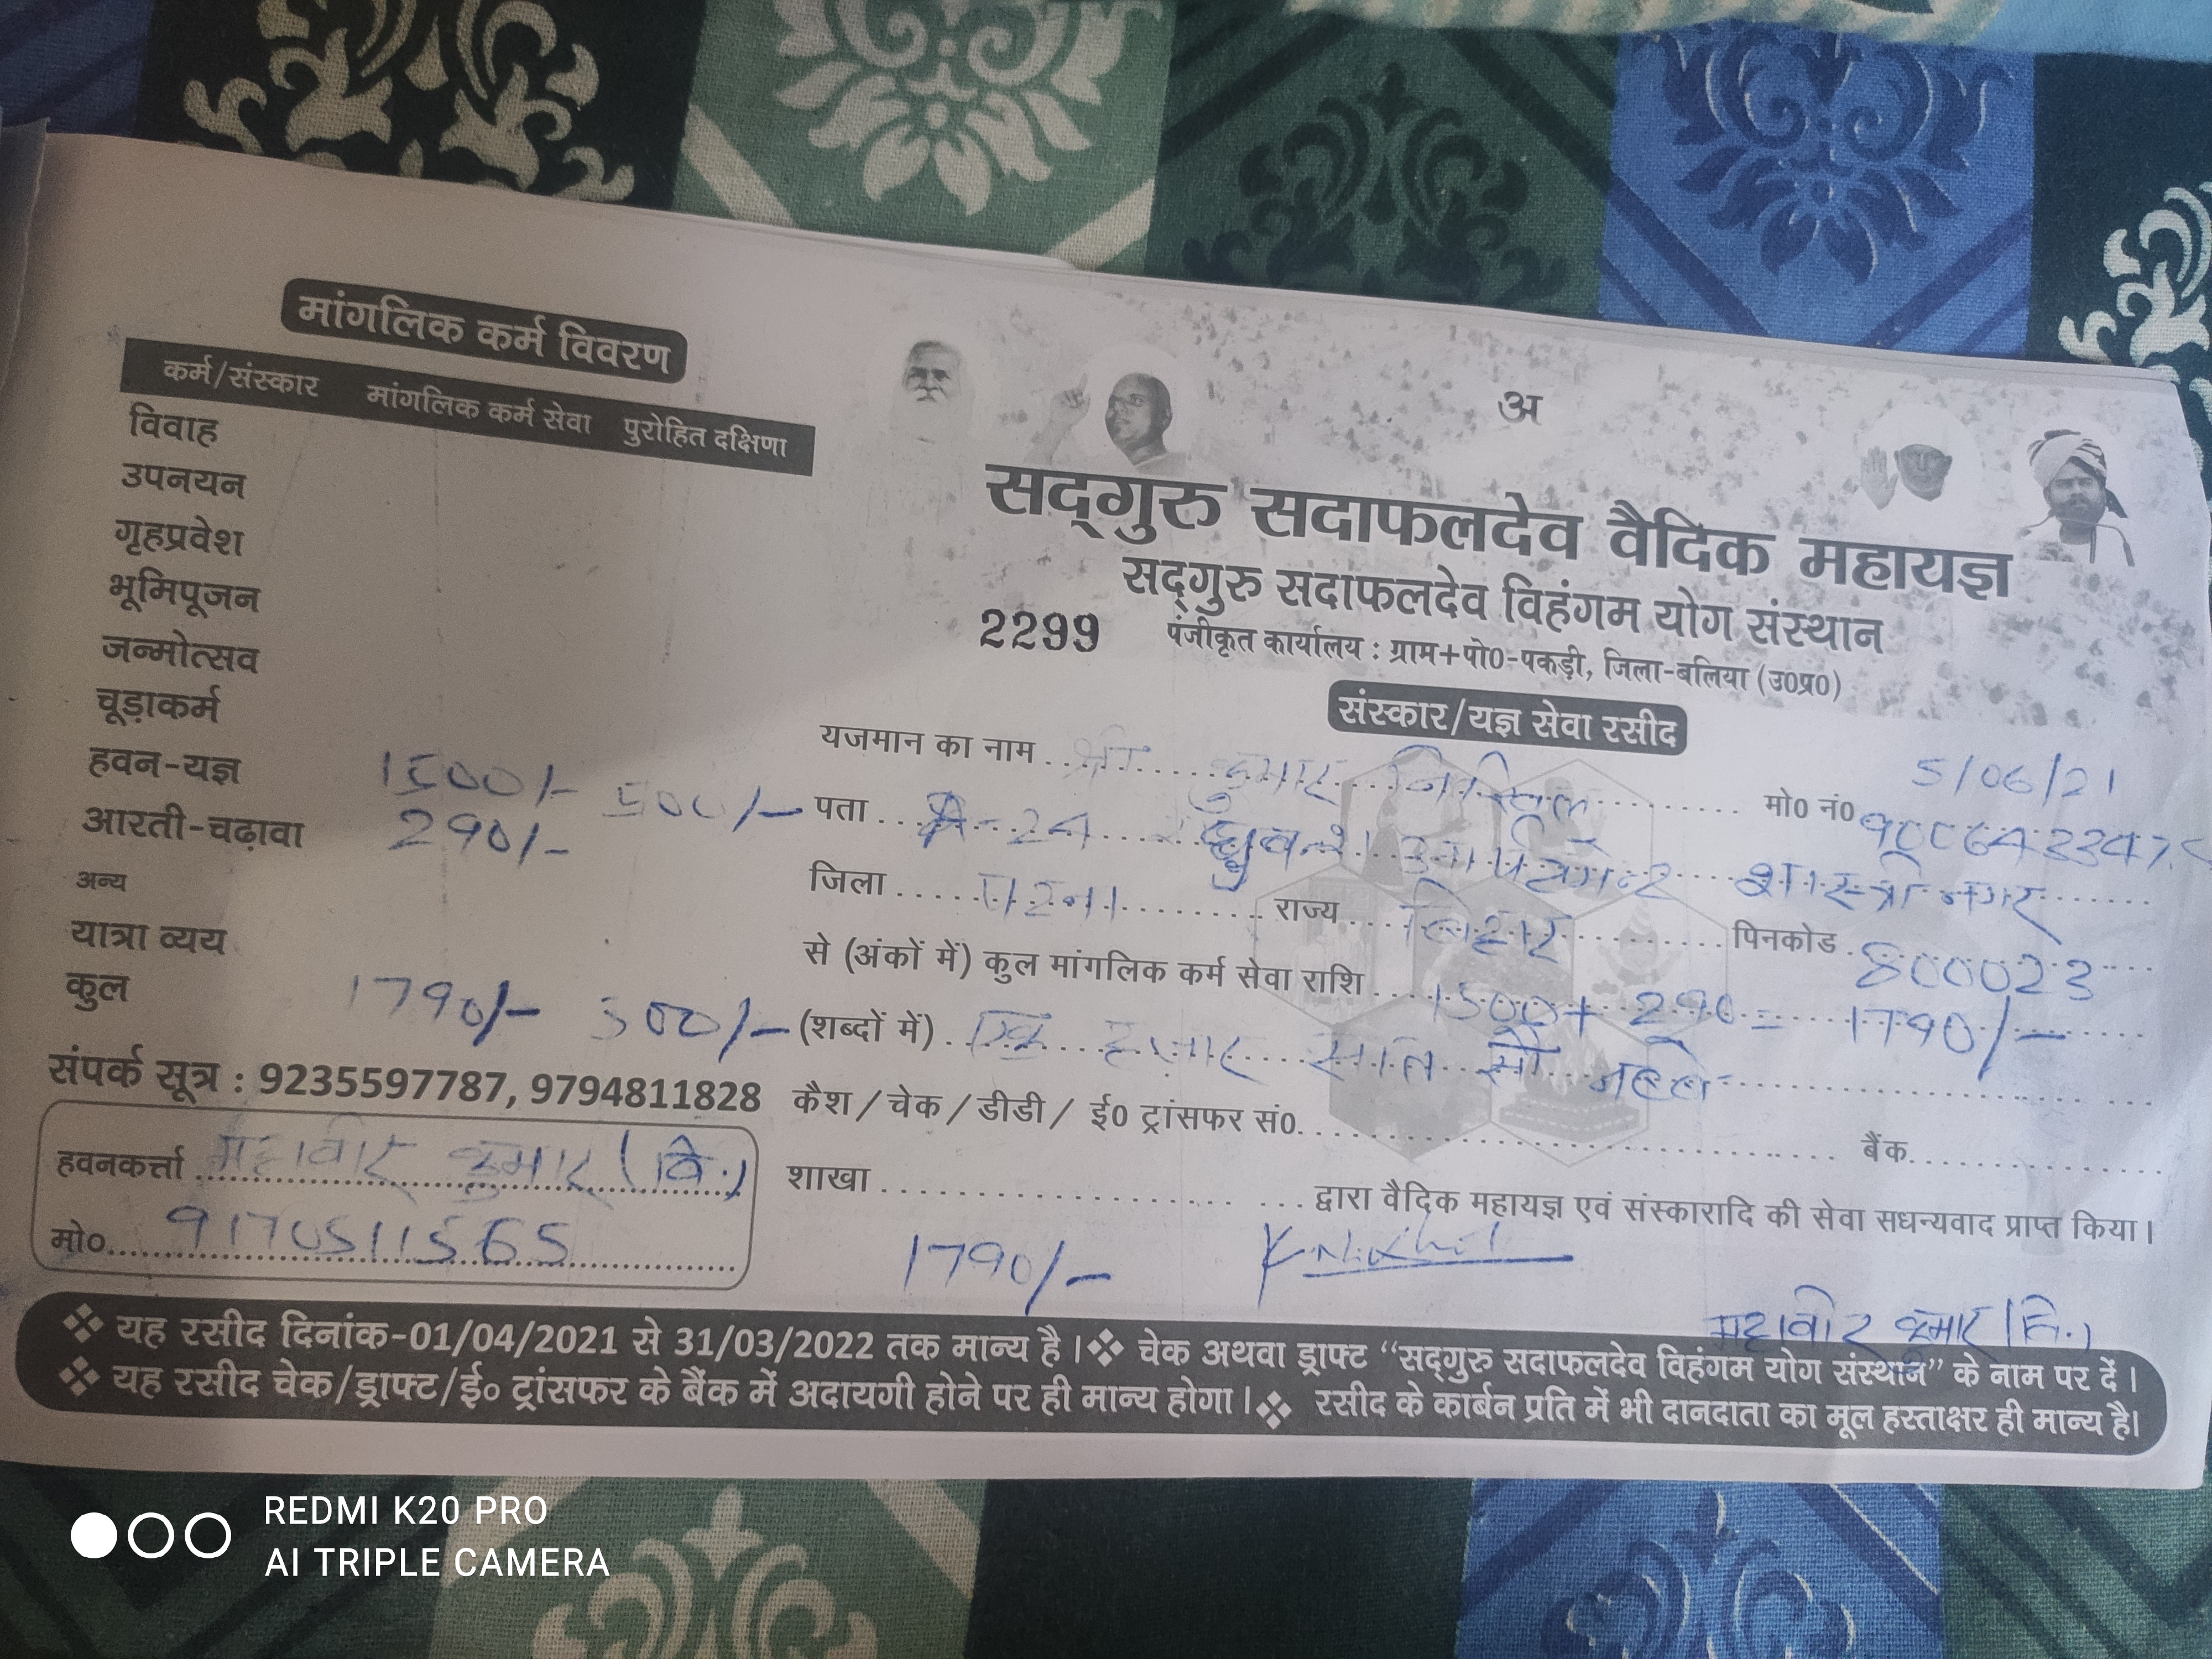 मांगलिक कर्म विवरण
कर्म/संस्कार मांगलिक कर्म सेवा पुरोहित दक्षिणा
विवाह
उपनयन
गृहप्रवेश
भूमिपूजन
जन्मोत्सव
चूड़ाकर्म
हवन-यज्ञ 1500/- 500/-
आरती-चढ़ावा 290/-
अन्य
यात्रा व्यय
कुल 1790/- 500/-
संपर्क सूत्र : 9235597787, 9794811828
हवनकर्त्ता महावीर कुमार (वि.)
मो० 9170511565
अ
सद्गुरु सदाफलदेव वैदिक महायज्ञ
सद्गुरु सदाफलदेव विहंगम योग संस्थान
2299 पंजीकृत कार्यालय : ग्राम+पो0-पकड़ी, जिला-बलिया (उ0प्र0)
संस्कार/यज्ञ सेवा रसीद
5/06/21
यजमान का नाम श्री कुमार निखिल मो0 नं0
पता A-24 शास्त्री नगर
जिला पटना राज्य बिहार पिनकोड 800023
से (अंकों में) कुल मांगलिक कर्म सेवा राशि 1500 + 290 = 1790/-
(शब्दों में) एक हजार सात सौ नब्बे
कैश / चेक / डीडी / ई0 ट्रांसफर सं0 बैंक
शाखा द्वारा वैदिक महायज्ञ एवं संस्कारादि की सेवा सधन्यवाद प्राप्त किया।
1790/- K Nikhil
महावीर कुमार (वि.)
❖ यह रसीद दिनांक-01/04/2021 से 31/03/2022 तक मान्य है। ❖ चेक अथवा ड्राफ्ट “सद्गुरु सदाफलदेव विहंगम योग संस्थान” के नाम पर दें।
❖ यह रसीद चेक/ड्राफ्ट/ई० ट्रांसफर के बैंक में अदायगी होने पर ही मान्य होगा। ❖ रसीद के कार्बन प्रति में भी दानदाता का मूल हस्ताक्षर ही मान्य है।
REDMI K20 PRO
AI TRIPLE CAMERA